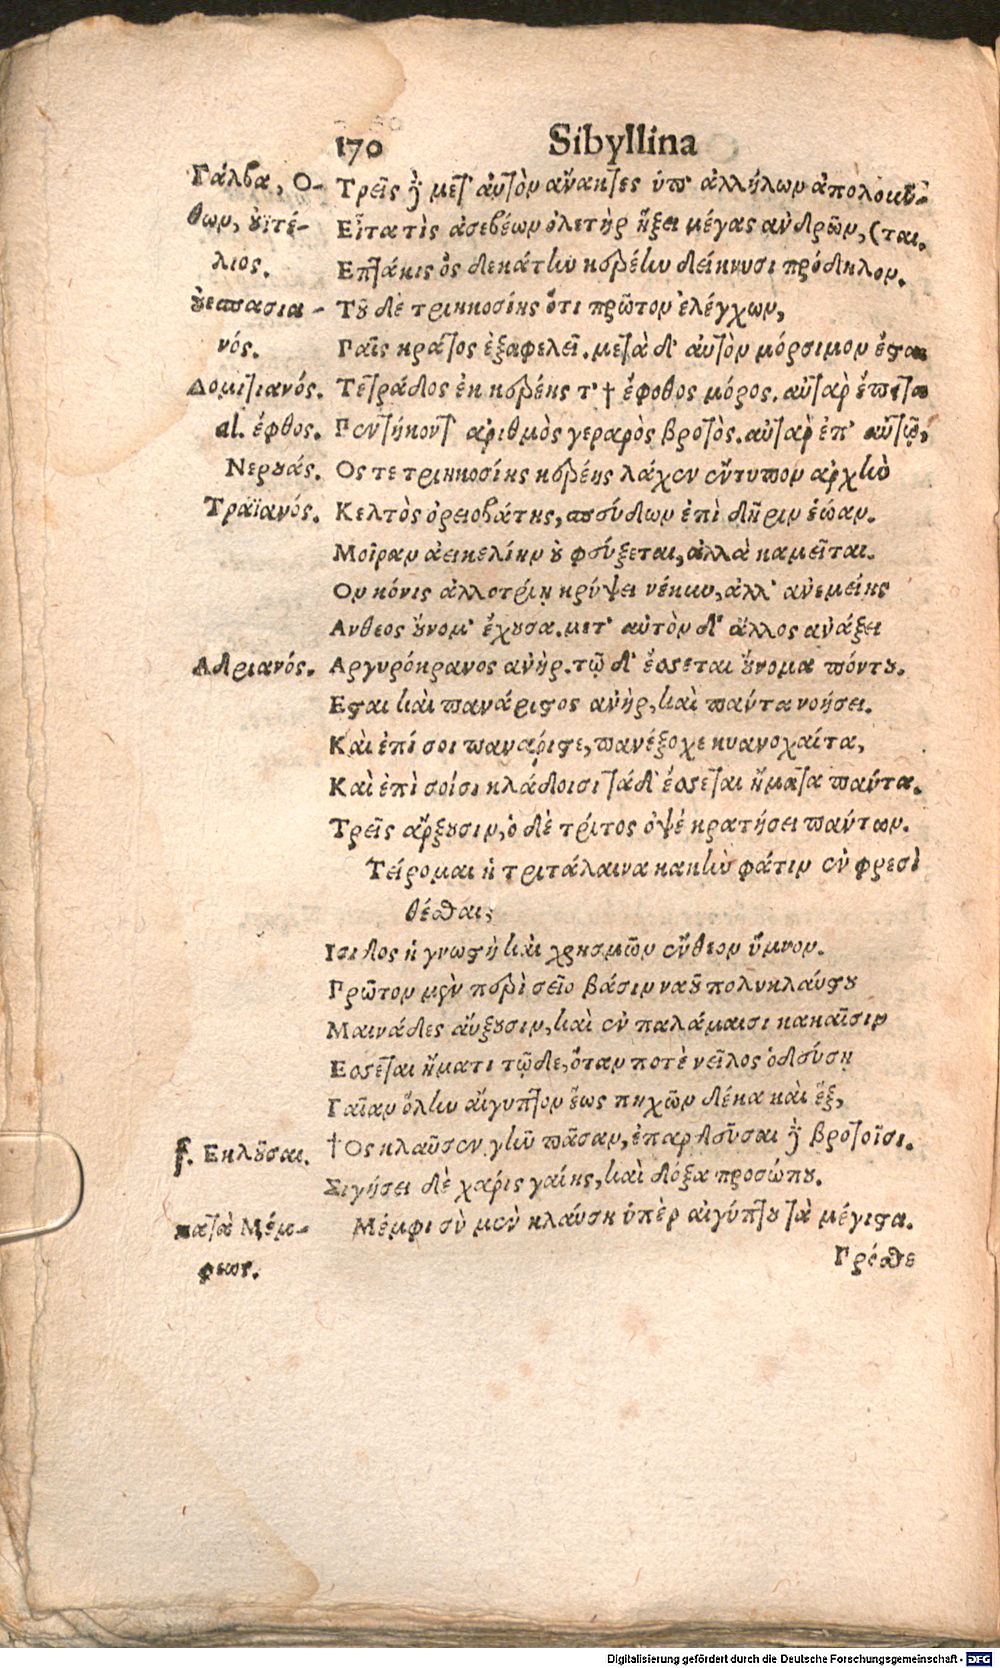 170 Sibyllina
Γάλβα, Ο- Τρεῖς δὲ μετ' αὐτὸν ἄνακτες ὑπ' ἀλλήλων ἀπολοῦν-
θων, οὐϊτέ- Εἶτα τὶς ἀσεβέων ὀλετὴρ ἥξει μέγας ἀνδρῶν, (ται.
λιος. Ἑπτάκις ὃς δεκάτην κεραίην δείκνυσι πρόδηλον.
οὐεσπασια- Τοῦ δὲ τριηκοσίης ὅτι πρῶτον ἐλέγχων,
νός. Παῖς κράτος ἐξαφελεῖ. μετὰ δ' αὐτὸν μόρσιμον ἔσται
Δομιτιανός. Τετράδος ἐκ κεραίης τ' † ἔφοθος μόρος. αὐτὰρ ἔπειτα
al. ἔφθος. Πεντήκοντ' ἀριθμὸς γεραρὸς βροτός. αὐτὰρ ἐπ' αὐτῷ,
Νερουάς. Ὅς τε τριηκοσίης κεραίης λάχεν ἔντυπον ἀρχὴν
Τραϊανός. Κελτὸς ὀρειοβάτης, σπεύδων ἐπὶ δῆριν ἑῴαν.
Μοῖραν ἀεικελίην οὐ φεύξεται, ἀλλὰ καμεῖται.
Ὃν κόνις ἀλλοτρίη κρύψει νέκυν, ἀλλ' ἀνεμείης
Ἄνθεος οὔνομ' ἔχουσα. μετ' αὐτὸν δ' ἄλλος ἀνάξει
Αδριανός. Ἀργυρόκρανος ἀνήρ. τῷ δ' ἔσσεται οὔνομα πόντου.
Ἔσται καὶ πανάριστος ἀνήρ, καὶ πάντα νοήσει.
Καὶ ἐπί σοι πανάριστε, πανέξοχε κυανοχαίτα,
Καὶ ἐπὶ σοῖσι κλάδοισι τάδ' ἔσσεται ἤματα πάντα.
Τρεῖς ἄρξουσιν, ὁ δὲ τρίτος ὀψὲ κρατήσει πάντων.
Τείρομαι ἡ τριτάλαινα κακὴν φάτιν ἐν φρεσὶ
θέσθαι,
Ἴσιδος ἡ γνωστὴ καὶ χρησμῶν ἔνθεον ὕμνον.
Πρῶτον μὲν περὶ σεῖο βάσιν ναοῦ πολυκλαύστου
Μαινάδες ἄυξουσιν, καὶ ἐν παλάμαισι κακαῖσιν
Ἔσσεται ἤματι τῷδε, ὅταν ποτὲ νεῖλος ὁδεύσῃ
Γαῖαν ὅλην αἴγυπτον ἕως πηχῶν δέκα καὶ ἕξ,
f. Ἐκλοῦσαι. †Ὃς κλαῦσεν γῆν πᾶσαν, ἐπαρδεῦσαι δὲ βροτοῖσι.
Σιγήσει δὲ χάρις γαίης, καὶ δόξα προσώπου.
κατὰ Μέμ- Μέμφι σὺ μὲν κλαύση ὑπὲρ αἰγύπτου τὰ μέγιστα.
φεως. Πρόσθε
Digitalisierung gefördert durch die Deutsche Forschungsgemeinschaft - DFG